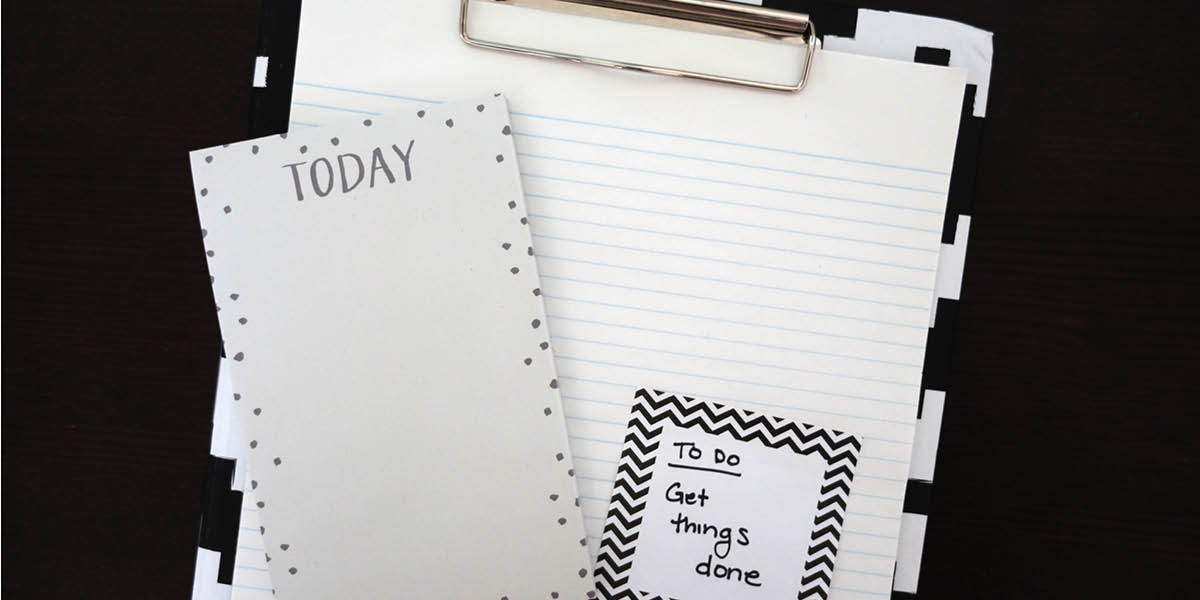 TODAY
TO DO
Get
things
done